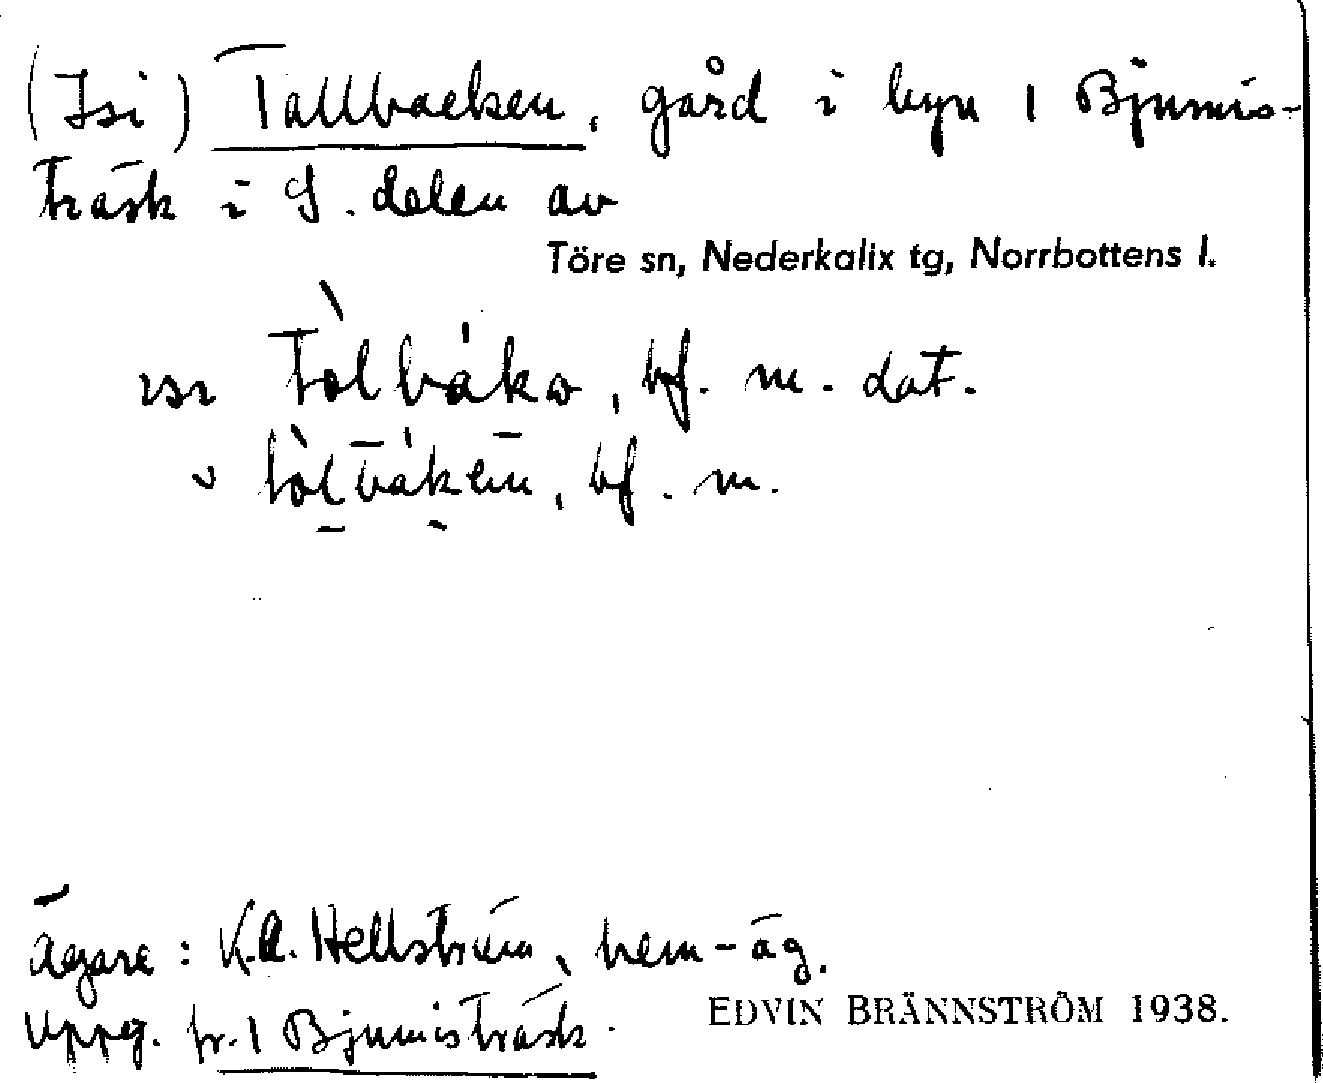 (Isi) Tallbacken, gård i byn 1 Bjumis-
träsk i S. delen av
Töre sn, Nederkalix tg, Norrbottens l.
tòlbákɷ, bf. m. dat.
tòlbáken, bf. m.
ägare: K.A. Hellström, hem-äg.
Uppg. fr. 1 Bjumisträsk.
EDVIN BRÄNNSTRÖM 1938.